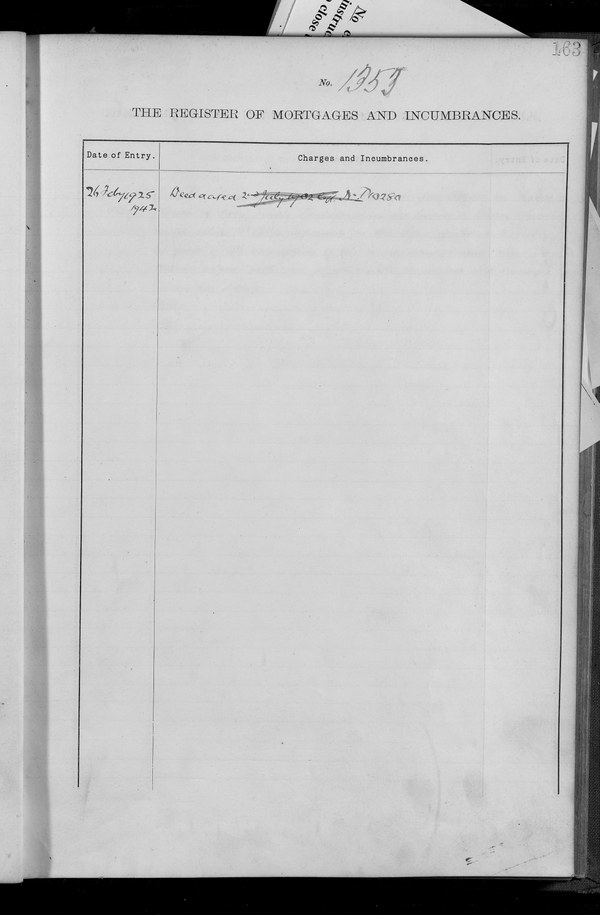 No e
instruc
o close
163
No. 1353
THE REGISTER OF MORTGAGES AND INCUMBRANCES.
Date of Entry.
Charges and Incumbrances.
26 Feby 1925 Deed dated 2nd July 1902
1942